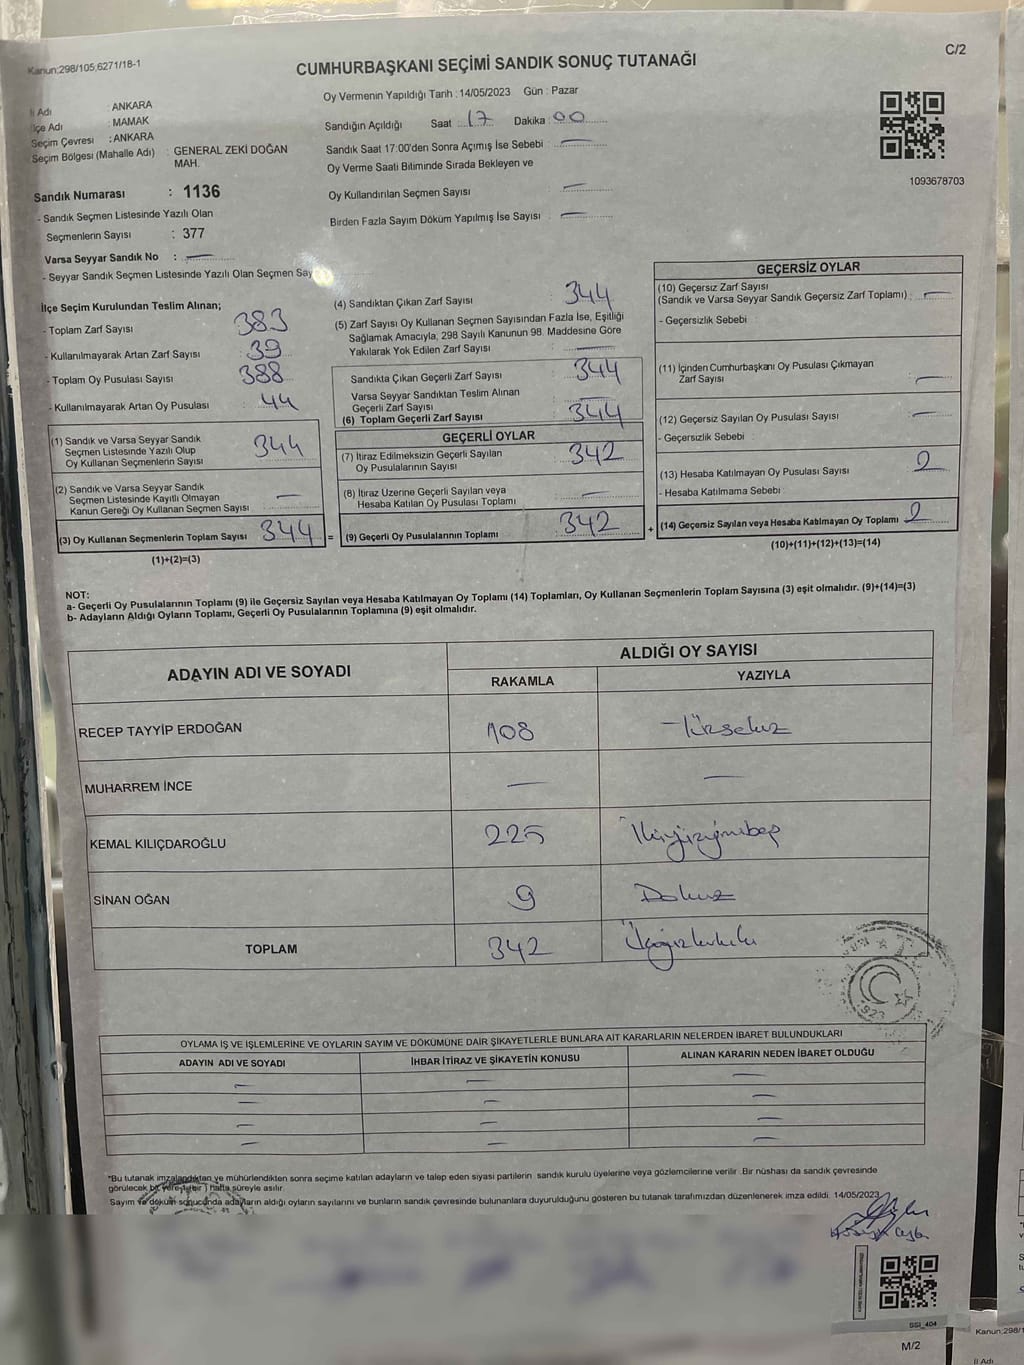 Kanun;298/105;6271/18-1
C/2
CUMHURBAŞKANI SEÇİMİ SANDIK SONUÇ TUTANAĞI
İl Adı : ANKARA
İlçe Adı : MAMAK
Seçim Çevresi : ANKARA
Seçim Bölgesi (Mahalle Adı) : GENERAL ZEKİ DOĞAN MAH.
Sandık Numarası : 1136
- Sandık Seçmen Listesinde Yazılı Olan
Seçmenlerin Sayısı : 377
Varsa Seyyar Sandık No : —
- Seyyar Sandık Seçmen Listesinde Yazılı Olan Seçmen Say
Oy Vermenin Yapıldığı Tarih : 14/05/2023 Gün : Pazar
Sandığın Açıldığı Saat : 17 Dakika : 00
Sandık Saat 17:00'den Sonra Açımış İse Sebebi : —
Oy Verme Saati Bitiminde Sırada Bekleyen ve
Oy Kullandırılan Seçmen Sayısı —
Birden Fazla Sayım Döküm Yapılmış İse Sayısı : —
1093678703
İlçe Seçim Kurulundan Teslim Alınan;
- Toplam Zarf Sayısı 383
- Kullanılmayarak Artan Zarf Sayısı : 39
- Toplam Oy Pusulası Sayısı 388
- Kullanılmayarak Artan Oy Pusulası : 44
(1) Sandık ve Varsa Seyyar Sandık
Seçmen Listesinde Yazılı Olup
Oy Kullanan Seçmenlerin Sayısı 344
(2) Sandık ve Varsa Seyyar Sandık
Seçmen Listesinde Kayıtlı Olmayan
Kanun Gereği Oy Kullanan Seçmen Sayısı —
(3) Oy Kullanan Seçmenlerin Toplam Sayısı 344
(1)+(2)=(3)
(4) Sandıktan Çıkan Zarf Sayısı : 344
(5) Zarf Sayısı Oy Kullanan Seçmen Sayısından Fazla İse, Eşitliği
Sağlamak Amacıyla, 298 Sayılı Kanunun 98. Maddesine Göre
Yakılarak Yok Edilen Zarf Sayısı —
Sandıkta Çıkan Geçerli Zarf Sayısı : 344
Varsa Seyyar Sandıktan Teslim Alınan
Geçerli Zarf Sayısı —
(6) Toplam Geçerli Zarf Sayısı 344
GEÇERLİ OYLAR
(7) İtiraz Edilmeksizin Geçerli Sayılan
Oy Pusulalarının Sayısı : 342
(8) İtiraz Üzerine Geçerli Sayılan veya
Hesaba Katılan Oy Pusulası Toplamı : —
= (9) Geçerli Oy Pusulalarının Toplamı 342
GEÇERSİZ OYLAR
(10) Geçersiz Zarf Sayısı
(Sandık ve Varsa Seyyar Sandık Geçersiz Zarf Toplamı) : —
- Geçersizlik Sebebi
(11) İçinden Cumhurbaşkanı Oy Pusulası Çıkmayan
Zarf Sayısı —
(12) Geçersiz Sayılan Oy Pusulası Sayısı —
- Geçersizlik Sebebi
(13) Hesaba Katılmayan Oy Pusulası Sayısı 2
- Hesaba Katılmama Sebebi
+ (14) Geçersiz Sayılan veya Hesaba Katılmayan Oy Toplamı 2
(10)+(11)+(12)+(13)=(14)
NOT:
a- Geçerli Oy Pusulalarının Toplamı (9) ile Geçersiz Sayılan veya Hesaba Katılmayan Oy Toplamı (14) Toplamları, Oy Kullanan Seçmenlerin Toplam Sayısına (3) eşit olmalıdır. (9)+(14)=(3)
b- Adayların Aldığı Oyların Toplamı, Geçerli Oy Pusulalarının Toplamına (9) eşit olmalıdır.
ADAYIN ADI VE SOYADI ALDIĞI OY SAYISI
RAKAMLA YAZIYLA
RECEP TAYYİP ERDOĞAN 108 Yüzsekiz
MUHARREM İNCE — —
KEMAL KILIÇDAROĞLU 225 İkiyüzyirmibeş
SİNAN OĞAN 9 Dokuz
TOPLAM 342 Üçyüzkırkiki
OYLAMA İŞ VE İŞLEMLERİNE VE OYLARIN SAYIM VE DÖKÜMÜNE DAİR ŞİKAYETLERLE BUNLARA AİT KARARLARIN NELERDEN İBARET BULUNDUKLARI
ADAYIN ADI VE SOYADI İHBAR İTİRAZ VE ŞİKAYETİN KONUSU ALINAN KARARIN NEDEN İBARET OLDUĞU
— — —
— — —
— — —
— — —
*Bu tutanak imzalandıktan ve mühürlendikten sonra seçime katılan adayların ve talep eden siyasi partilerin sandık kurulu üyelerine veya gözlemcilerine verilir .Bir nüshası da sandık çevresinde
görülecek bir yere ( bir ) hafta süreyle asılır.
Sayım ve döküm sonucunda adayların aldığı oyların sayılarını ve bunların sandık çevresinde bulunanlara duyurulduğunu gösteren bu tutanak tarafımızdan düzenlenerek imza edildi. 14/05/2023
SSİ_404
M/2
Kanun;298/1
İl Adı